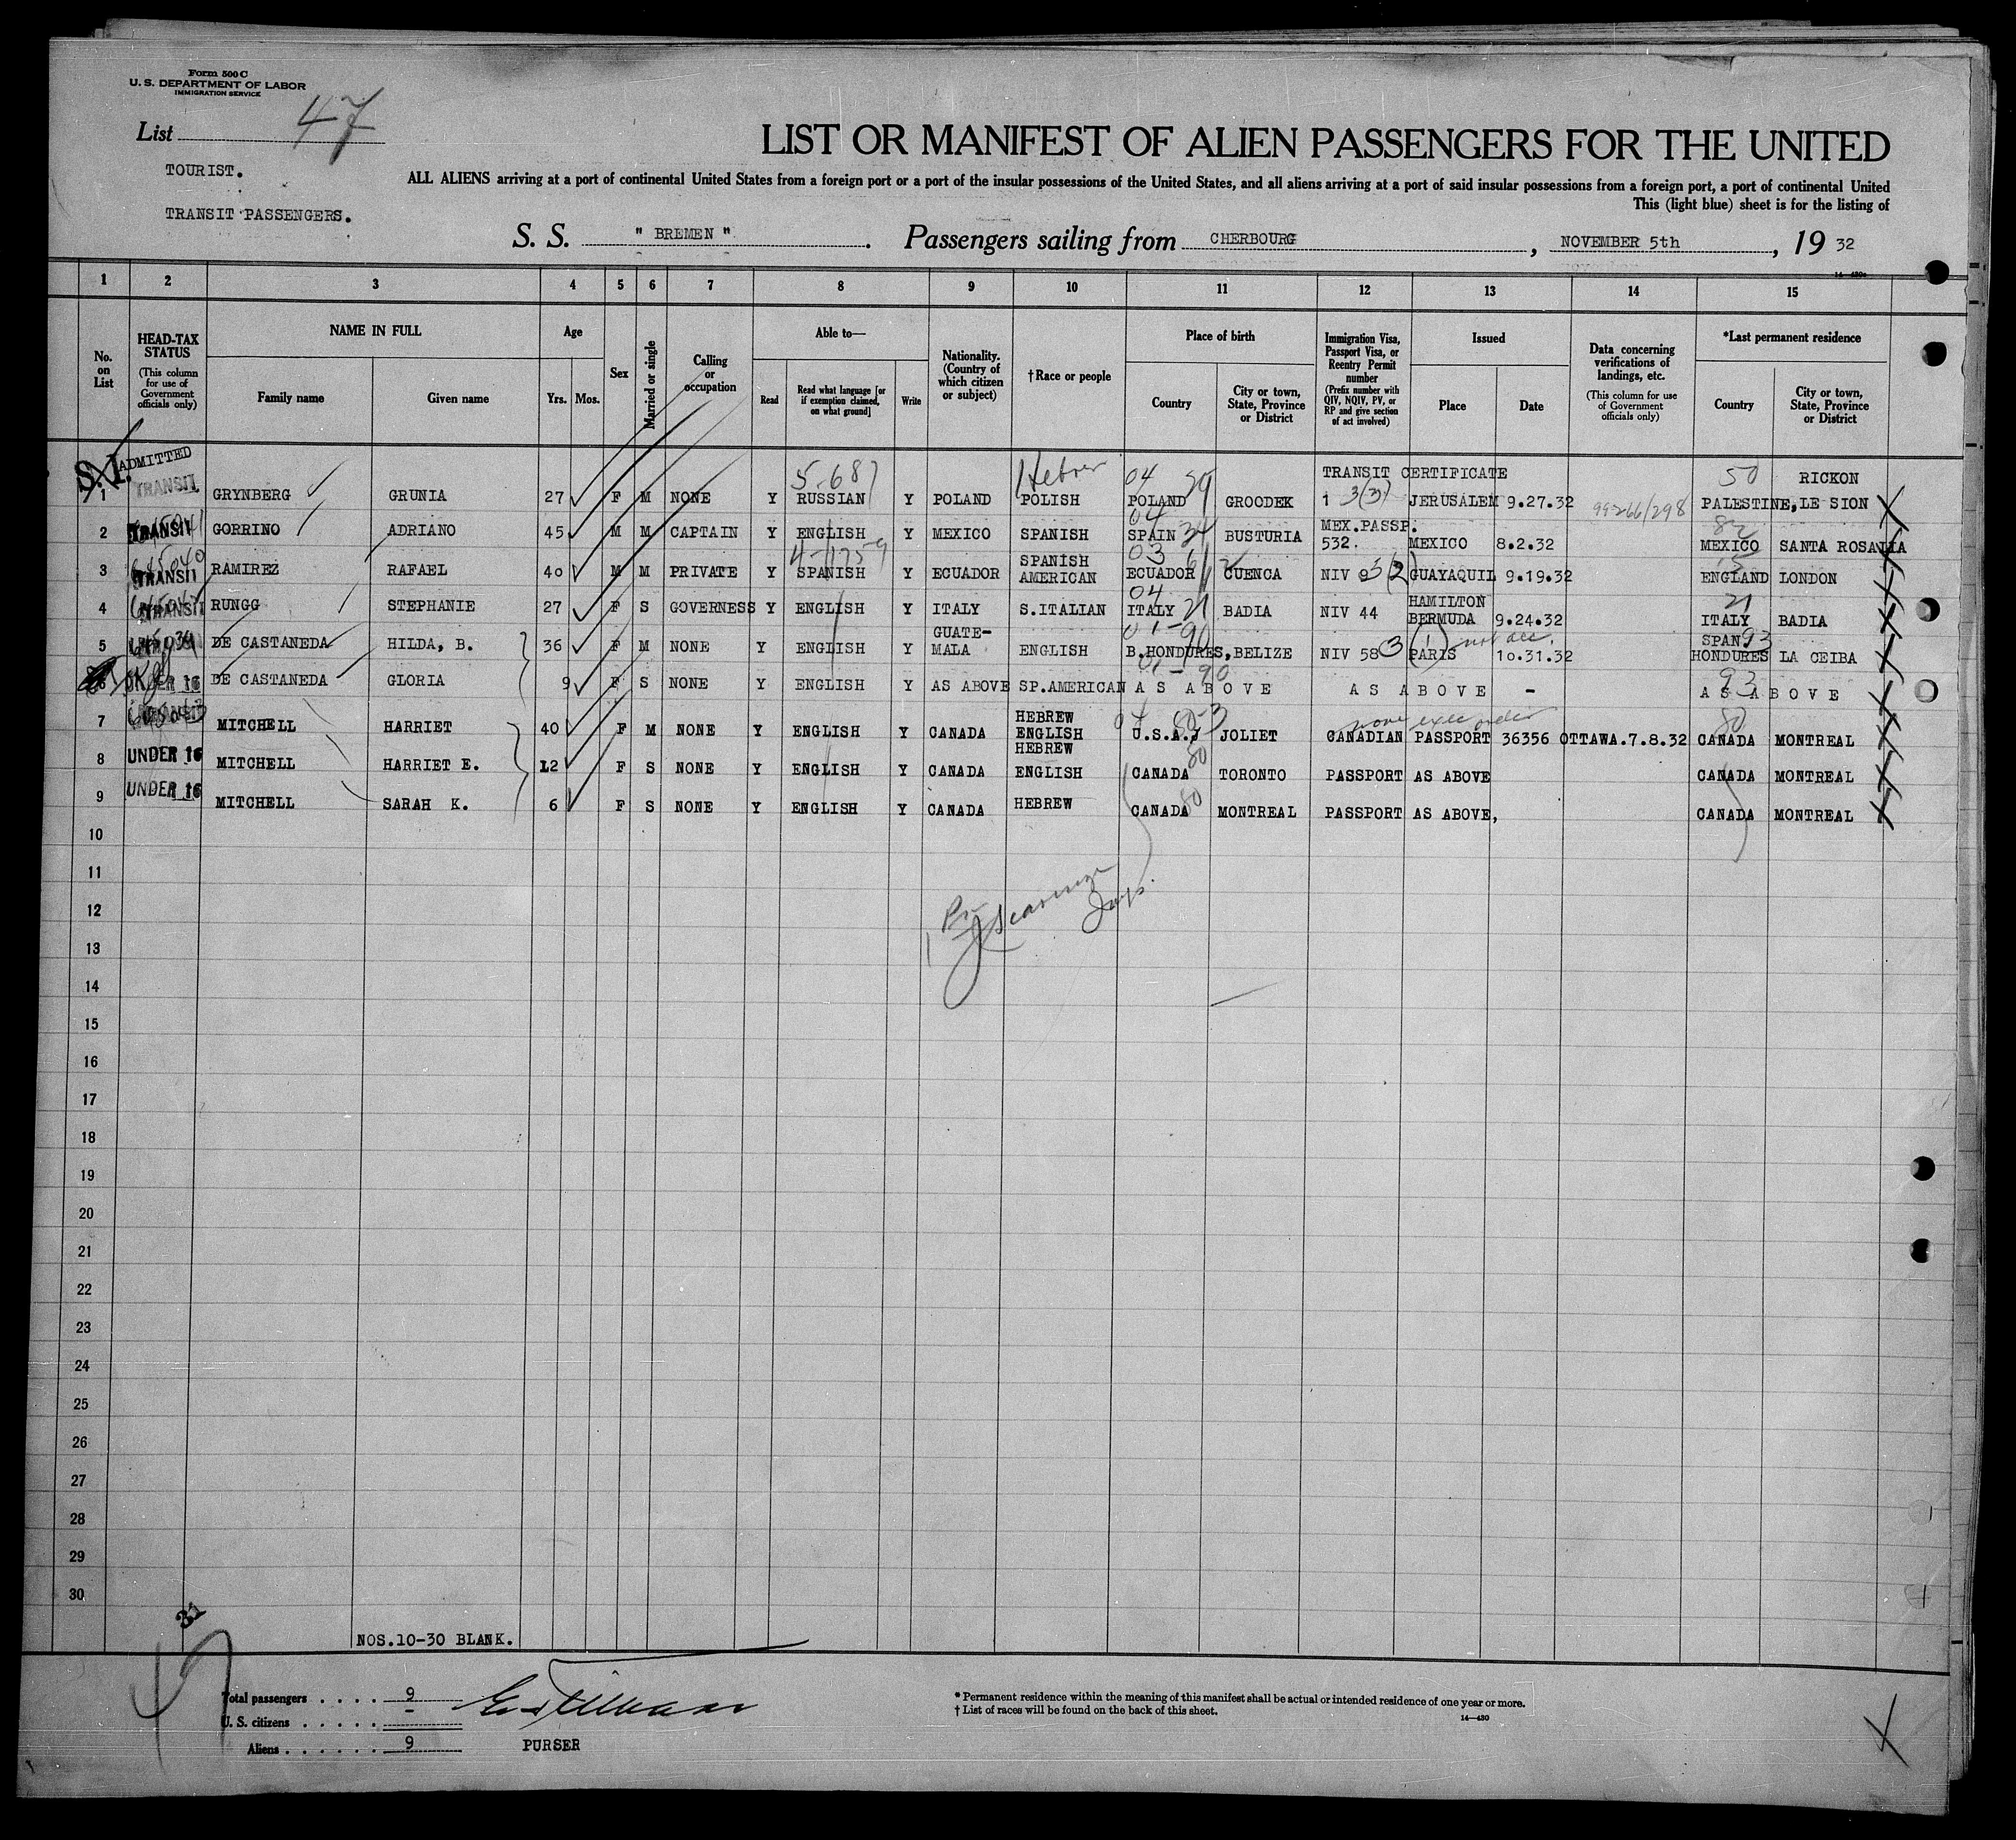 Form 500 C
U. S. DEPARTMENT OF LABOR
IMMIGRATION SERVICE
List 47
TOURIST.
TRANSIT PASSENGERS.
LIST OR MANIFEST OF ALIEN PASSENGERS FOR THE UNITED
ALL ALIENS arriving at a port of continental United States from a foreign port or a port of the insular possessions of the United States, and all aliens arriving at a port of said insular possessions from a foreign port, a port of continental United
This (light blue) sheet is for the listing of
S. S. " BREMEN " . Passengers sailing from CHERBOURG , NOVEMBER 5th , 19 32
1 2 3 4 5 6 7 8 9 10 11 12 13 14 15
No. on List
HEAD-TAX STATUS (This column for use of Government officials only)
NAME IN FULL
Family name
Given name
Age
Yrs. Mos.
Sex
Married or single
Calling or occupation
Able to—
Read
Read what language [or if exemption claimed, on what ground]
Write
Nationality. (Country of which citizen or subject)
†Race or people
Place of birth
Country
City or town, State, Province or District
Immigration Visa, Passport Visa, or Reentry Permit number (Prefix number with QIV, NQIV, PV, or RP and give section of act involved)
Issued
Place
Date
Data concerning verifications of landings, etc. (This column for use of Government officials only)
*Last permanent residence
Country
City or town, State, Province or District
S.I. ADMITTED 5-687 Hebrew 04 29 TRANSIT CERTIFICATE 50 RICKON
1 TRANSIT GRYNBERG GRUNIA 27 F M NONE Y RUSSIAN Y POLAND POLISH POLAND GROODEK 1 3(3) JERUSALEM 9.27.32 99-266/298 PALESTINE, LE SION
2 TRANSIT GORRINO ADRIANO 45 M M CAPTAIN Y ENGLISH Y MEXICO SPANISH 04 SPAIN 34 BUSTURIA MEX.PASSP. 532. MEXICO 8.2.32 82 MEXICO SANTA ROSALIA
3 645040 TRANSIT RAMIREZ RAFAEL 40 M M PRIVATE Y SPANISH Y ECUADOR SPANISH AMERICAN 03 ECUADOR CUENCA NIV GUAYAQUIL 9.19.32 ENGLAND LONDON
4 TRANSIT RUNGG STEPHANIE 27 F S GOVERNESS Y ENGLISH Y ITALY S.ITALIAN 04 ITALY 21 BADIA NIV 44 HAMILTON BERMUDA 9.24.32 21 ITALY BADIA
5 DE CASTANEDA HILDA, B. 36 F M NONE Y ENGLISH Y GUATE-MALA ENGLISH 01-90 B.HONDURES, BELIZE NIV 58 3(1) PARIS 10.31.32 SPAN. 93 HONDURES LA CEIBA
6 UNDER 16 DE CASTANEDA GLORIA 9 F S NONE Y ENGLISH Y AS ABOVE SP.AMERICAN 01-90 AS ABOVE AS ABOVE - 93 AS ABOVE
7 MITCHELL HARRIET 40 F M NONE Y ENGLISH Y CANADA HEBREW ENGLISH 04 80-3 U.S.A. JOLIET none exec order CANADIAN PASSPORT 36356 OTTAWA.7.8.32 80 CANADA MONTREAL
8 UNDER 16 MITCHELL HARRIET E. 12 F S NONE Y ENGLISH Y CANADA HEBREW ENGLISH CANADA 80 TORONTO PASSPORT AS ABOVE CANADA MONTREAL
9 UNDER 16 MITCHELL SARAH K. 6 F S NONE Y ENGLISH Y CANADA HEBREW CANADA 80 MONTREAL PASSPORT AS ABOVE, CANADA MONTREAL
10
11
12
13
14
15
16
17
18
19
20
21
22
23
24
25
26
27
28
29
30
NOS.10-30 BLANK.
Total passengers . . . . 9
U. S. citizens . . . . . -
Aliens . . . . . . 9
PURSER
* Permanent residence within the meaning of this manifest shall be actual or intended residence of one year or more.
† List of races will be found on the back of this sheet.
14—430